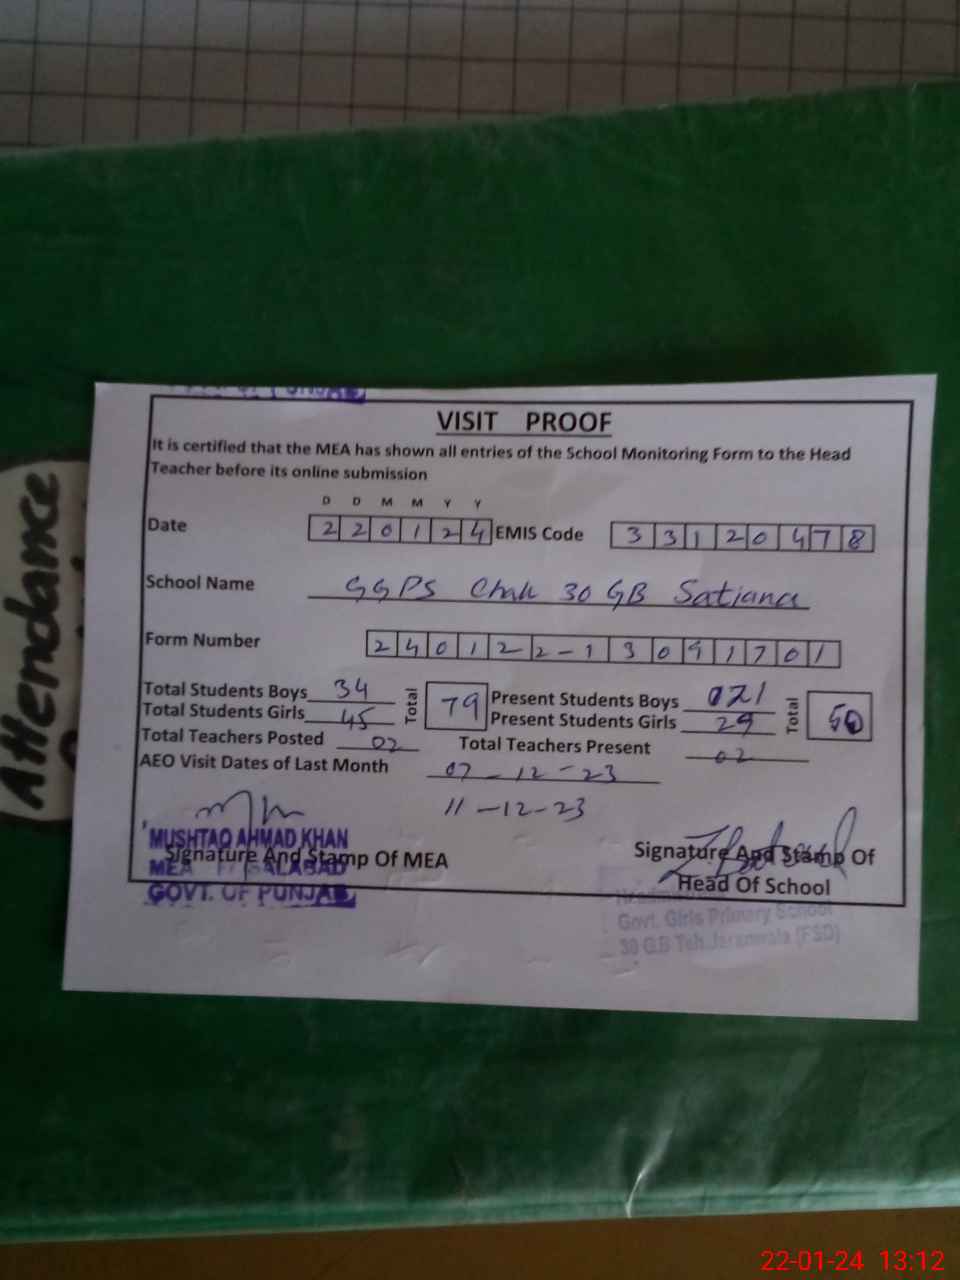 VISIT PROOF
It is certified that the MEA has shown all entries of the School Monitoring Form to the Head
Teacher before its online submission
D D M M Y Y
Date 2 2 0 1 2 4 EMIS Code 3 3 1 2 0 4 7 8
School Name GGPS Chak 30 GB Satiana
Form Number 2 4 0 1 2 2 - 1 3 0 9 1 7 0 1
Total Students Boys 34 Total 79 Present Students Boys 021 Total 50
Total Students Girls 45 Present Students Girls 29
Total Teachers Posted 02 Total Teachers Present 02
AEO Visit Dates of Last Month 07-12-23
11-12-23
MUSHTAQ AHMAD KHAN
Signature And Stamp Of MEA
MEA FAISALABAD
GOVT. OF PUNJAB
Signature And Stamp Of
Head Of School
Govt. Girls Primary School
30 G.B Teh. Jaranwala (FSD)
Attendance
22-01-24 13:12